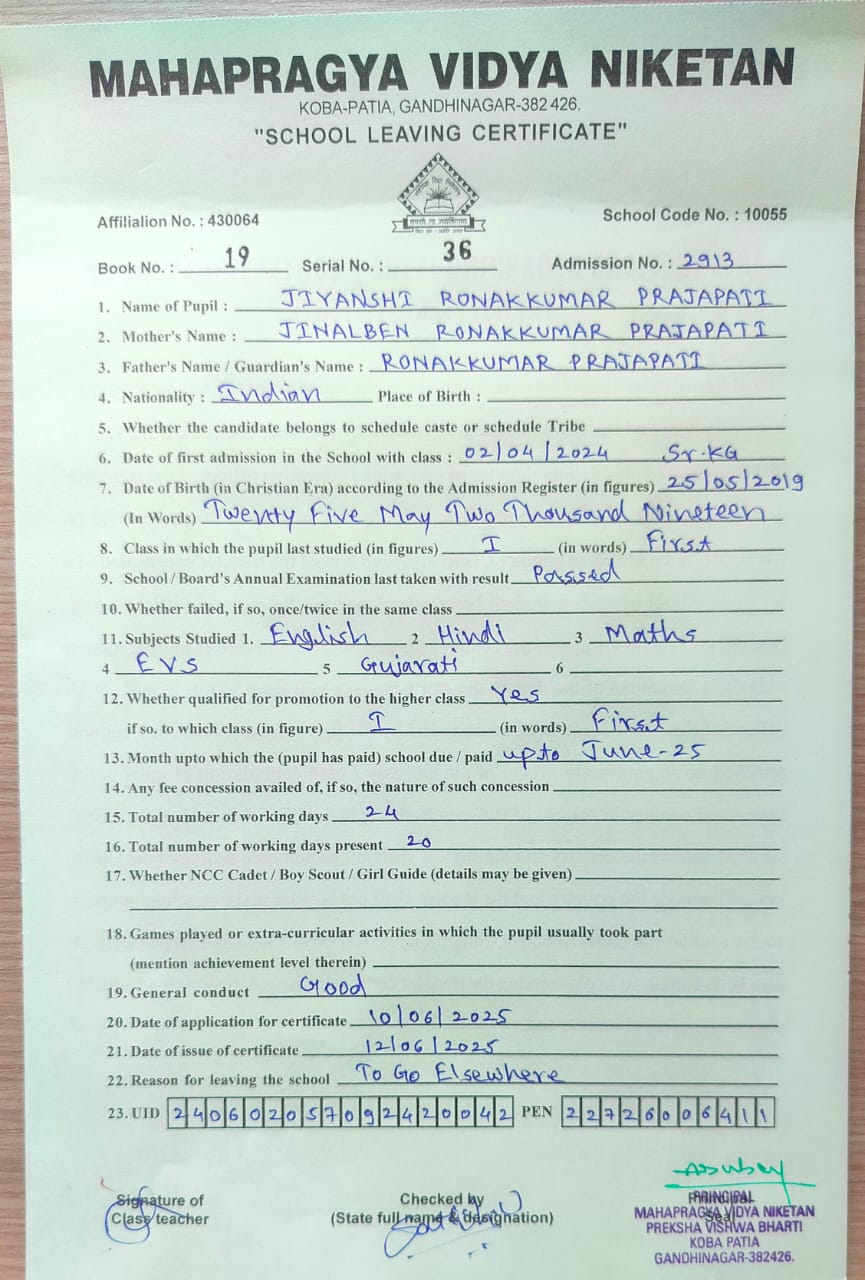 MAHAPRAGYA VIDYA NIKETAN
KOBA-PATIA, GANDHINAGAR-382 426.
"SCHOOL LEAVING CERTIFICATE"
Affilialion No. : 430064
School Code No. : 10055
Book No. : 19 Serial No. : 36 Admission No. : 2913
1. Name of Pupil : JIYANSHI RONAKKUMAR PRAJAPATI
2. Mother's Name : JINALBEN RONAKKUMAR PRAJAPATI
3. Father's Name / Guardian's Name : RONAKKUMAR PRAJAPATI
4. Nationality : Indian Place of Birth :
5. Whether the candidate belongs to schedule caste or schedule Tribe
6. Date of first admission in the School with class : 02/04/2024 Sr.KG
7. Date of Birth (in Christian Era) according to the Admission Register (in figures) 25/05/2019
(In Words) Twenty Five May Two Thousand Nineteen
8. Class in which the pupil last studied (in figures) I (in words) First
9. School / Board's Annual Examination last taken with result Passed
10. Whether failed, if so, once/twice in the same class
11. Subjects Studied 1. English 2 Hindi 3 Maths
4 EVS 5 Gujarati 6
12. Whether qualified for promotion to the higher class Yes
if so. to which class (in figure) I (in words) First
13. Month upto which the (pupil has paid) school due / paid upto June-25
14. Any fee concession availed of, if so, the nature of such concession
15. Total number of working days 24
16. Total number of working days present 20
17. Whether NCC Cadet / Boy Scout / Girl Guide (details may be given)
18. Games played or extra-curricular activities in which the pupil usually took part
(mention achievement level therein)
19. General conduct Good
20. Date of application for certificate 10/06/2025
21. Date of issue of certificate 12/06/2025
22. Reason for leaving the school To Go Elsewhere
23. UID 240602057092420042 PEN 22726006411
Signature of
Class teacher
Checked by
(State full name & designation)
PRINCIPAL
Seal
MAHAPRAGYA VIDYA NIKETAN
PREKSHA VISHWA BHARTI
KOBA PATIA
GANDHINAGAR-382426.